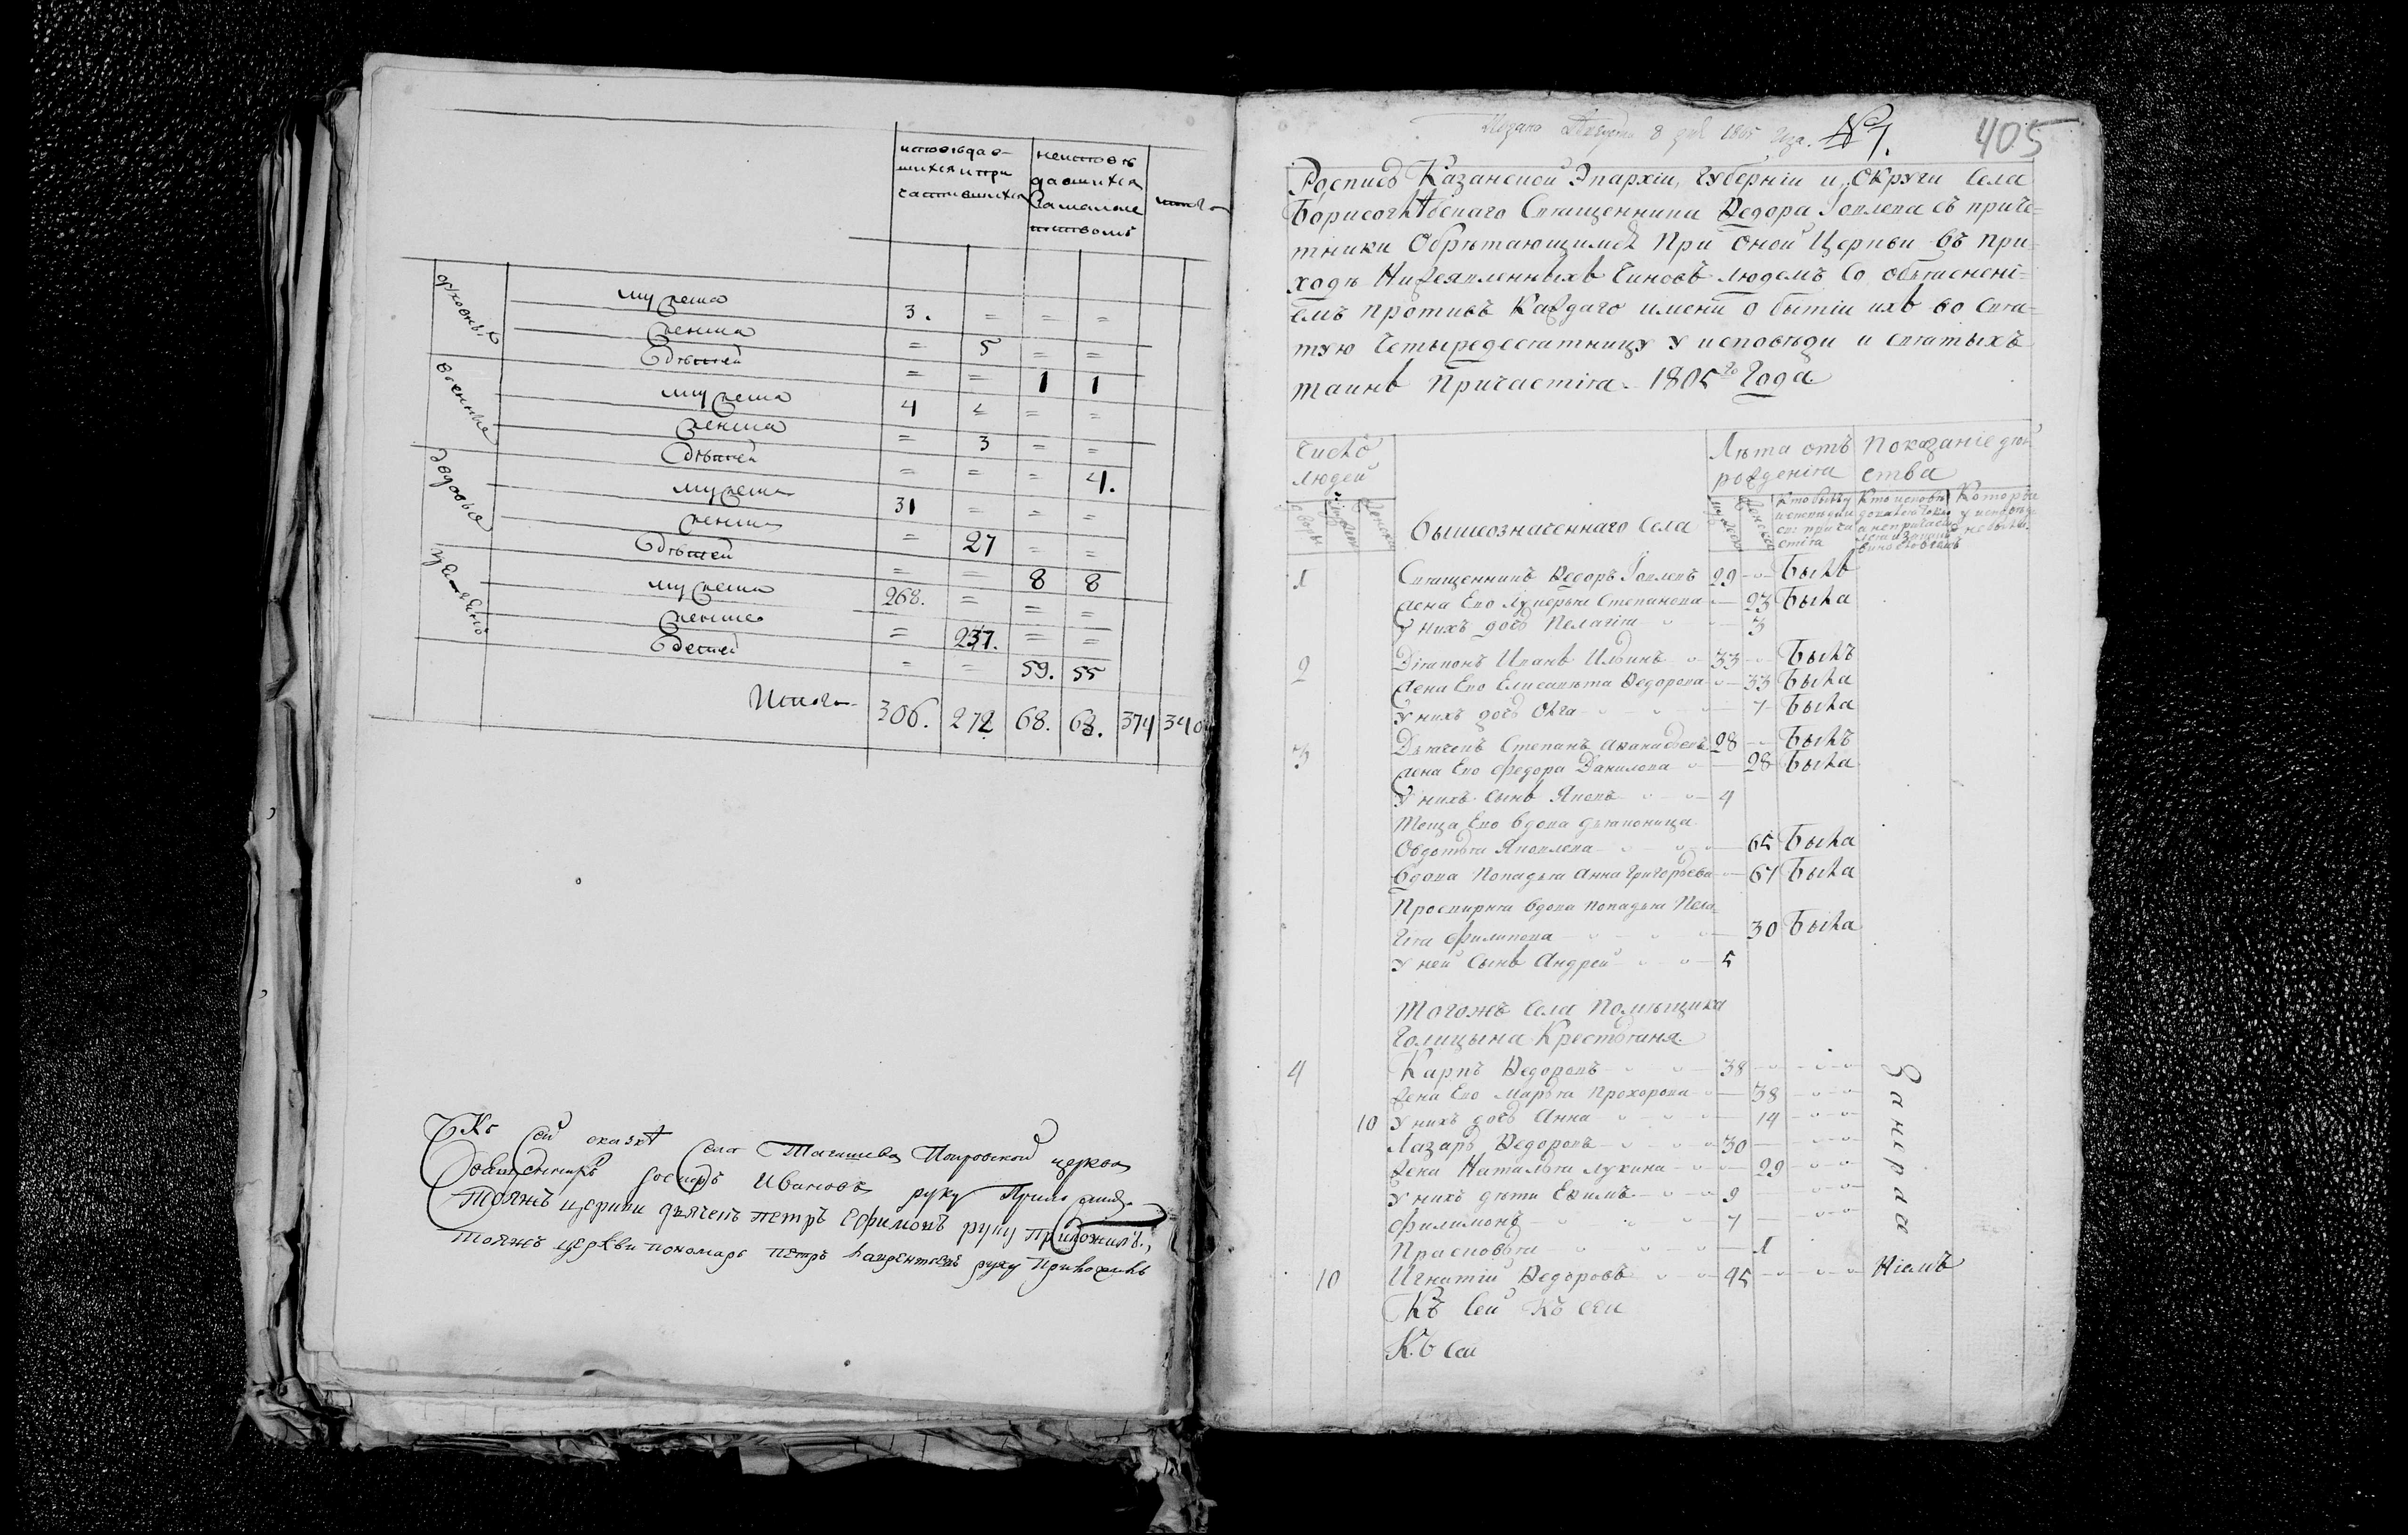 исповѣдав-
шихся и при
частившихся
неисповѣ
давшихся
за малолѣ
тствомъ
итого
духовныя
мужеска 3. = = =
женска = 5 = =
дѣтей = = 1 1
военные
мужеска 4 = = =
женска = 3 = =
дѣтей = = = 4.
дворовые
мужеска 31 = = =
женска = 27 = =
дѣтей = = 8 8
мужеска 268. = = =
женска = 237. = =
детей = = 59. 55
Итого 306. 272 68. 68. 374 340
Къ сей сказкѣ села Тагашева Покровской церкви
Священникъ Иосифъ Ивановъ руку приложилъ
тояжъ церкви дьячекъ петръ Ефимовъ руку приложилъ,
тояжъ церкви пономарь петръ Лаврентьевъ руку приложилъ
Подано Августа 8 дня 1805 года. №7. 405
Роспись Казанской Эпархіи, Губерніи и округи Села
Борисоглѣбскаго Священника Ѳедора Іовлева съ приче=
тники обрѣтающимся при оной Церкви въ при=
ходѣ нижеявленныхъ чиновъ людемъ со объясненi=
емъ противъ каждаго имени о бытіи ихъ во свя=
тую четыредесятницу у исповѣди и святыхъ
таинъ причастія. 1805го Года.
Число
людей
Лѣта отъ
рожденія
Показаніе дѣй
ства
дворы
мужеска
женска
Вышеозначеннаго Села
мужеска
женска
Кто былъ у
исповѣди и
св: прича
стія
Кто исповѣ
Которые
у исповѣди
не были.
1 Священникъ Ѳедоръ Іовлевъ 29 Былъ
жена Ево Лукерья Степанова 23 Была
У нихъ дочь Пелагія 3
2 Діаконъ Иванъ Ильинъ 33 Былъ
жена Ево Елисавѣта Ѳедорова 33 Была
У нихъ дочь Ольга 7 Была
3 Дьячекъ Степанъ Аѳанасьевъ 28 Былъ
жена Ево Ѳедора Данилова 28 Была
У нихъ сынъ Яковъ 4
Теща Ево вдова дьяконица
Овдотья Яковлева 65 Была
Вдова Попадья Анна Григорьева 67 Была
Просвирня вдова попадья Пела=
гія Филипова 30 Была
У ней сынъ Андрей 5
Тогожъ Села Помѣщика
Голицына Крестьяня.
4 Карпъ Ѳедоровъ 38
жена Ево Марья Прохорова 38
10 У нихъ дочь Анна 14
Лазарь Ѳедоровъ 30
жена Наталья Лукина 29
У нихъ дѣти Ефимъ 9
Филимонъ 7
Прасковья 1
10 Игнатій Ѳедоровъ 45 Нѣмъ
Къ сей Къ сеи
Къ сеи